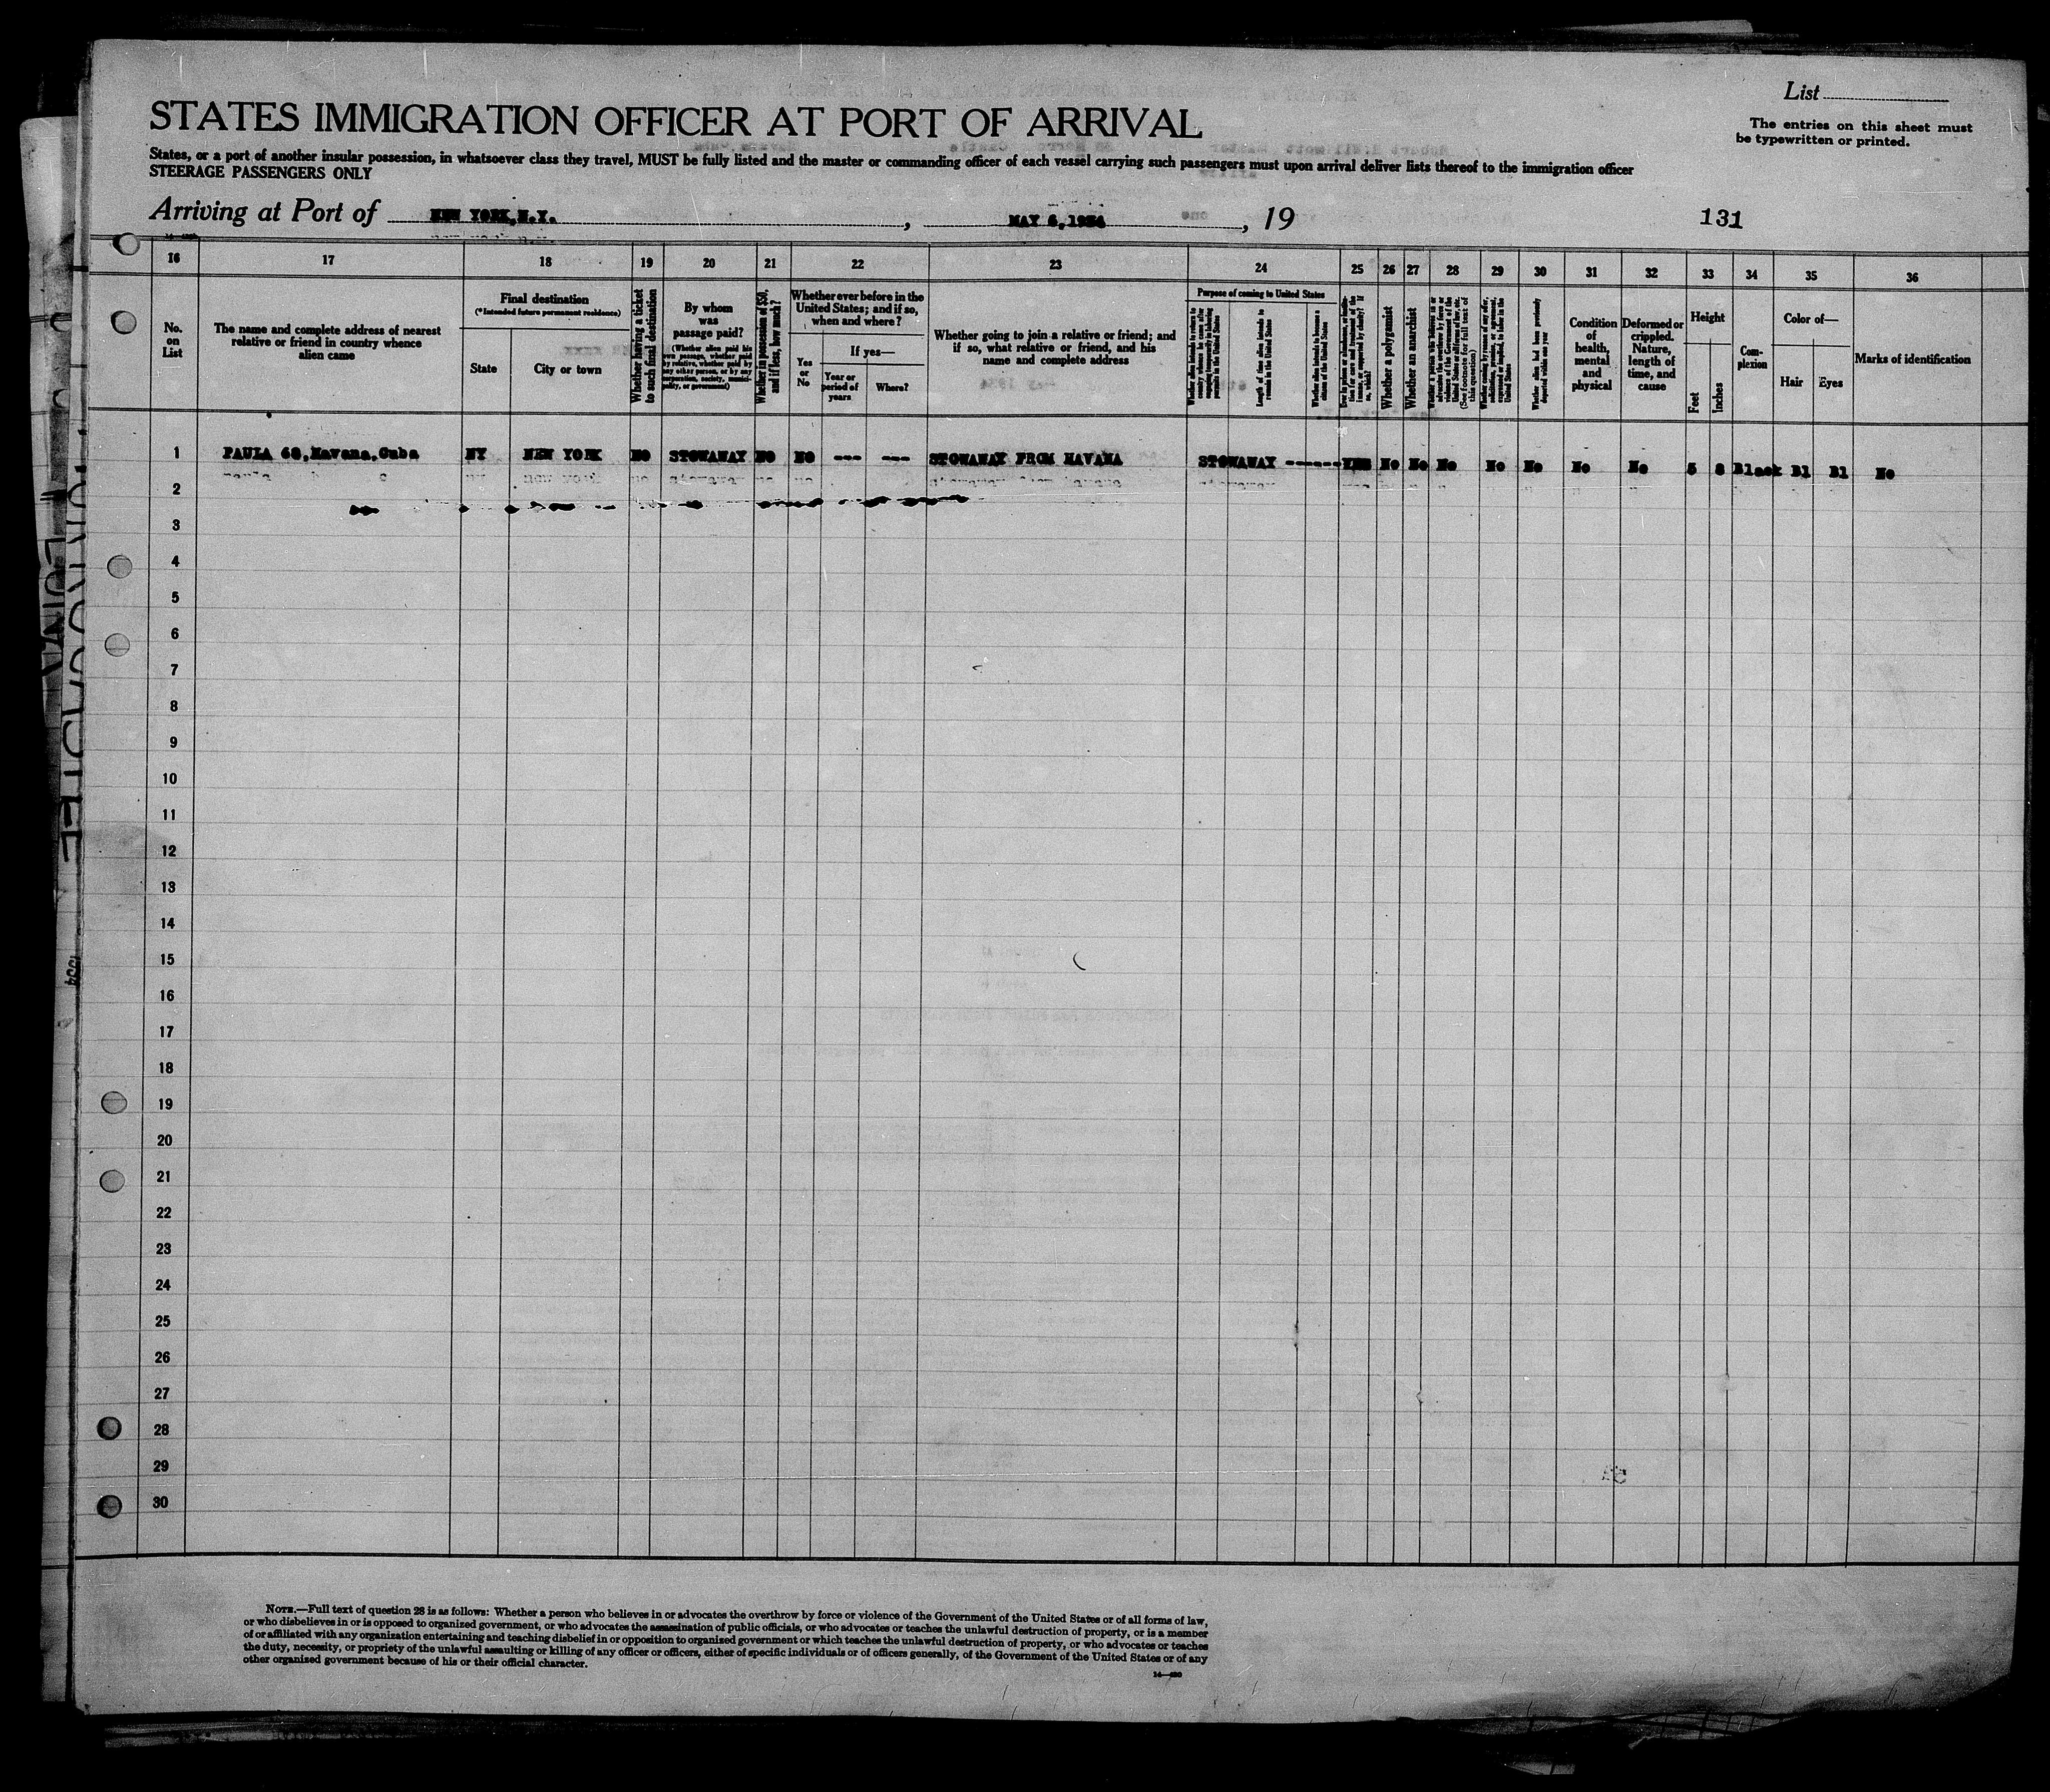 List
STATES IMMIGRATION OFFICER AT PORT OF ARRIVAL
The entries on this sheet must
be typewritten or printed.
States, or a port of another insular possession, in whatsoever class they travel, MUST be fully listed and the master or commanding officer of each vessel carrying such passengers must upon arrival deliver lists thereof to the immigration officer
STEERAGE PASSENGERS ONLY
Arriving at Port of NEW YORK, N.Y., MAY 6, 1934, 19
131
16 17 18 19 20 21 22 23 24 25 26 27 28 29 30 31 32 33 34 35 36
No. on List
The name and complete address of nearest
relative or friend in country whence
alien came
Final destination
(*Intended future permanent residence)
State
City or town
Whether having a ticket
to such final destination
By whom
was
passage paid?
(Whether alien paid his
own passage, whether paid
by relative, whether paid by
any other person, or by any
corporation, society, munici-
pality, or government)
Whether in possession of $50,
and if less, how much?
Whether ever before in the
United States; and if so,
when and where?
Yes
or
No
If yes—
Year or
period of
years
Where?
Whether going to join a relative or friend; and
if so, what relative or friend, and his
name and complete address
Purpose of coming to United States
Length of time alien intends to
remain in the United States
Whether alien intends to become a
citizen of the United States
Whether a polygamist
Whether an anarchist
(See footnote for full text of
this question)
Whether alien had been previously
deported within one year
Condition
of
health,
mental
and
physical
Deformed or
crippled.
Nature,
length of
time, and
cause
Height
Feet
Inches
Com-
plexion
Color of—
Hair
Eyes
Marks of identification
1 PAULA 68, Havana, Cuba NY NEW YORK NO STOWAWAY NO NO --- --- STOWAWAY FROM HAVANA STOWAWAY ------ YES No No No No No No No 5 8 Black Bl Bl No
2
3
4
5
6
7
8
9
10
11
12
13
14
15
16
17
18
19
20
21
22
23
24
25
26
27
28
29
30
NOTE.—Full text of question 28 is as follows: Whether a person who believes in or advocates the overthrow by force or violence of the Government of the United States or of all forms of law,
or who disbelieves in or is opposed to organized government, or who advocates the assassination of public officials, or who advocates or teaches the unlawful destruction of property, or is a member
of or affiliated with any organization entertaining and teaching disbelief in or opposition to organized government or which teaches the unlawful destruction of property, or who advocates or teaches
the duty, necessity, or propriety of the unlawful assaulting or killing of any officer or officers, either of specific individuals or of officers generally, of the Government of the United States or of any
other organized government because of his or their official character.